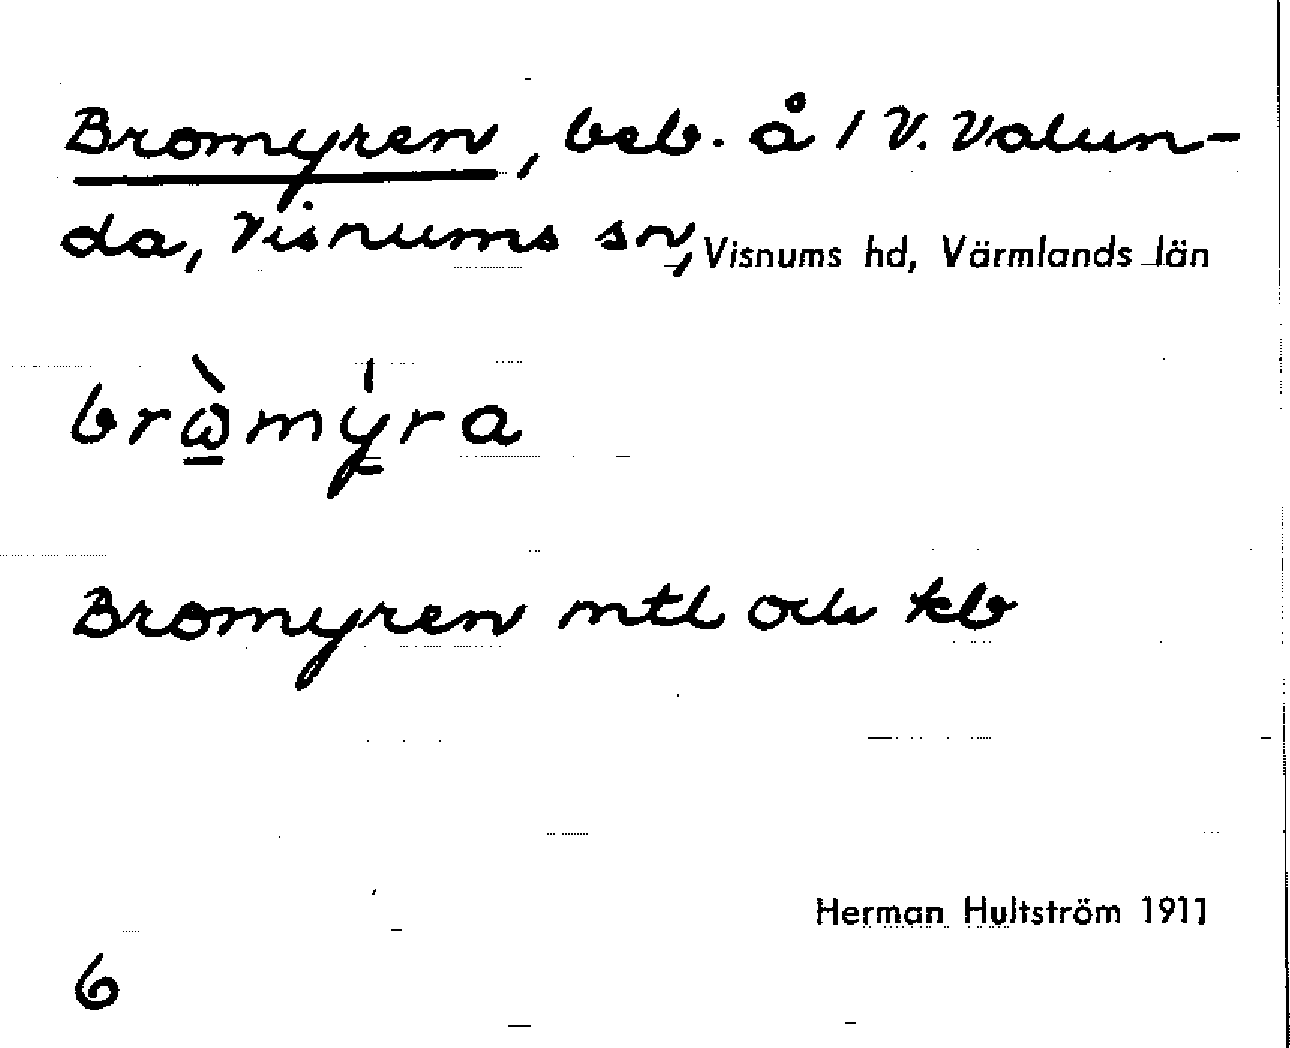 Bromyren, beb. å 1 V. Valun-
da, Visnums sn, Visnums hd, Värmlands län
brὼ̲mý̲ra
Bromyren mtl och kb
Herman Hultström 1911
6